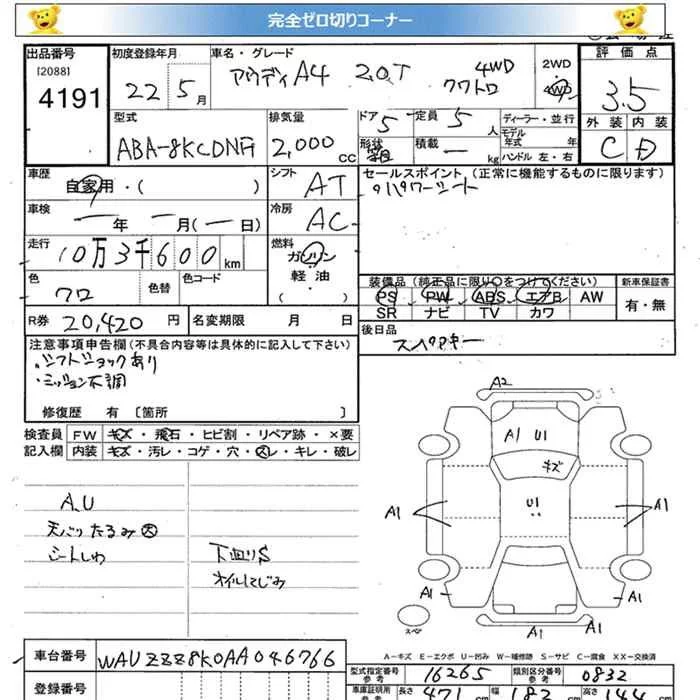 完全ゼロ切りコーナー
出品番号 初度登録年月 車名・グレード 2WD 評価点
[2088] 4191 22 5月 アウディA4 2.0T 4WD クワトロ 4WD 3.5
外装 内装
C D
型式 排気量 ドア 5 定員 5人 ディーラー・並行
ABA-8KCDNF 2,000cc 形状 積載 ー kg モデル年式 年 ハンドル 左・右
車歴 自家用・( ) シフト AT セールスポイント(正常に機能するものに限ります)
パワーシート
車検 ー年 ー月(ー日) 冷房 AC
走行 10万3千600km 燃料 ガソリン 軽油 ( )
色 クロ 色替 色コード
装備品(純正品に限り○をつけてください) 新車保証書
PS PW ABS エアB AW 有・無
SR ナビ TV カワ
R券 20,420円 名変期限 月 日
後日品 スペアキー
注意事項申告欄(不具合内容等は具体的に記入して下さい)
・シフトショックあり
・ミッション不調
修復歴 有 [箇所 ]
検査員記入欄 FW キズ・飛石・ヒビ割・リペア跡・×要
内装 キズ・汚レ・コゲ・穴・スレ・キレ・破レ
A.U
天バリたるみ大
シートしわ
下廻りS
オイルにじみ
A2
A1 U1
キズ
U1
A1 A1
A1 A1
スペア
A1
A-キズ E-エクボ U-凹み W-補修跡 S-サビ C-腐食 XX-交換済
車台番号 WAUZZZ8K0AA046766
型式指定番号 参考 16265 類別区分番号 参考 0832
登録番号
車庫証明用 参考 長さ 471cm 幅 182cm 高さ 144cm